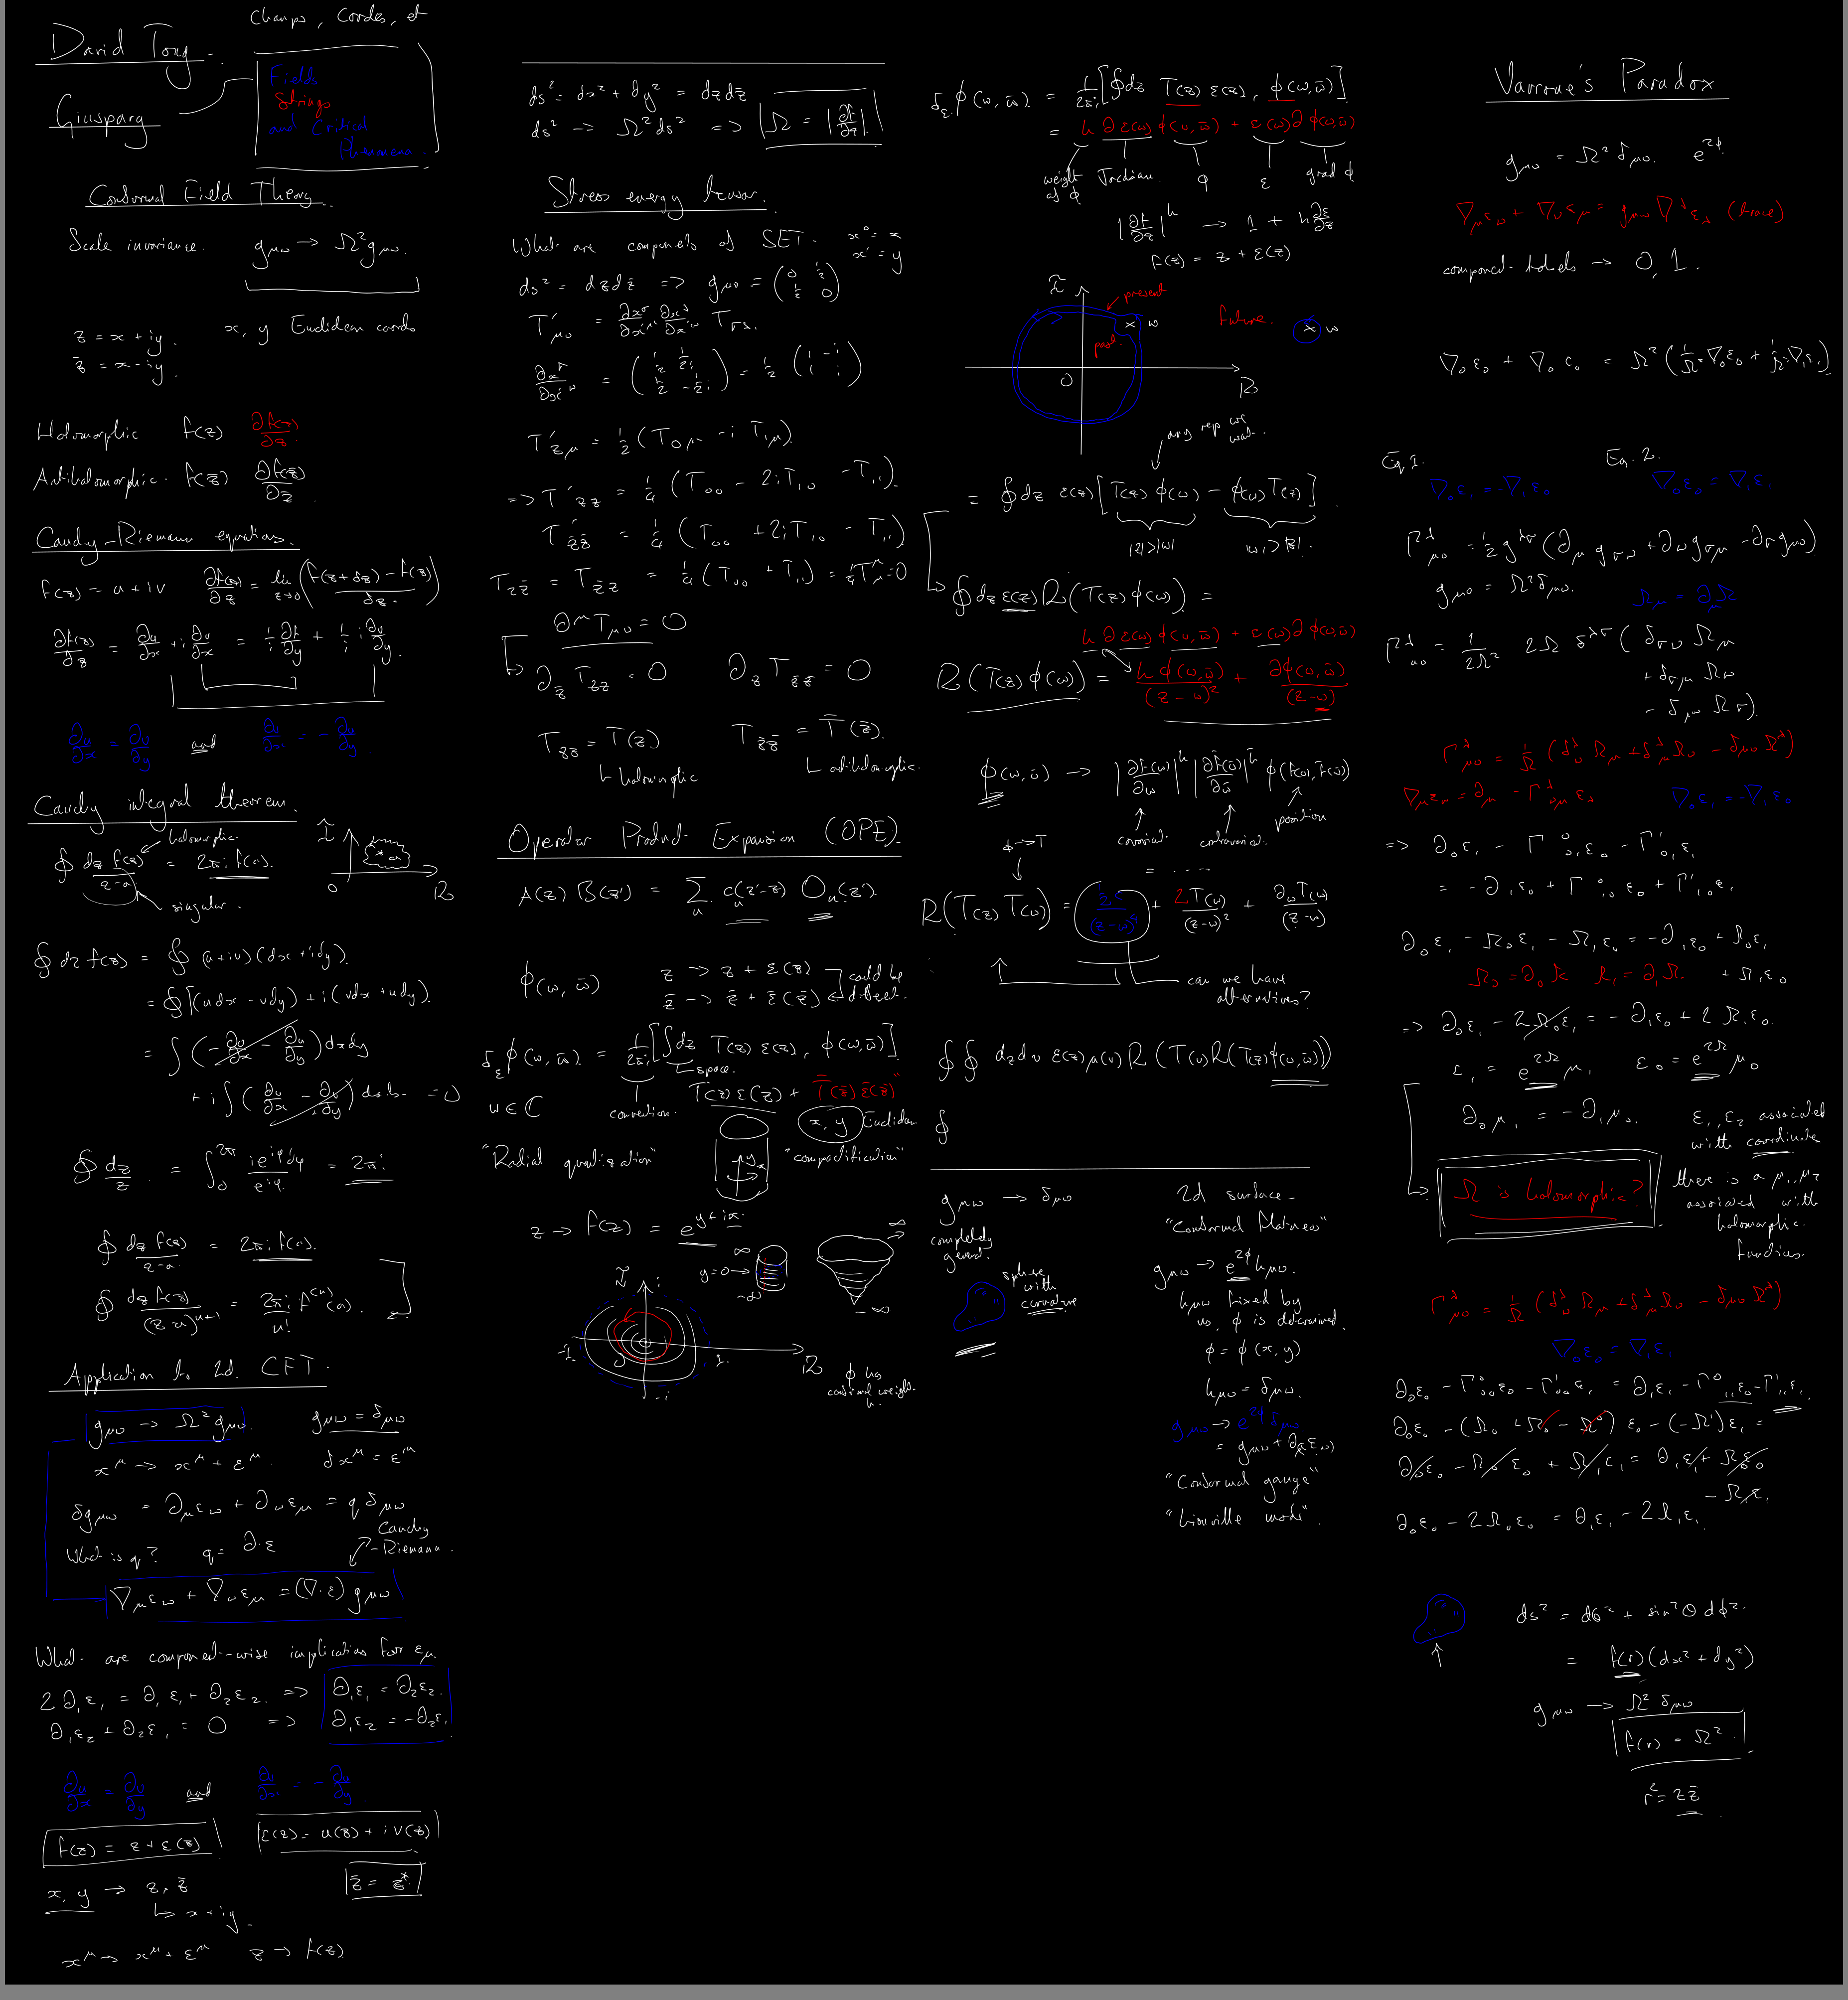 David Tong
Champs, Cordes, et
Ginsparg
Fields
Strings
and Critical
Phenomena
Conformal Field Theory
Scale invariance. gμν → Ω²gμν.
z = x + iy. x, y Euclidean coords
z̄ = x - iy.
Holomorphic f(z) ∂f(z)/∂z̄
Antiholomorphic. f(z̄) ∂f(z̄)/∂z
Cauchy-Riemann equations.
f(z) = u + iv
∂u/∂x = ∂v/∂y and ∂v/∂x = -∂u/∂y
Cauchy integral theorem.
holomorphic.
∮ dz f(z)/(z-a) = 2πi f(a).
singular.
∮ dz f(z) = ∮ (u+iv)(dx+idy)
= ∮[(udx - vdy) + i(vdx + udy)]
∮ dz/z = ∫₀^2π ie^iφ dφ/e^iφ = 2πi
∮ dz f(z)/(z-a) = 2πi f(a).
∮ dz f(z)/(z-a)ⁿ⁺¹ = 2πi/n! f⁽ⁿ⁾(a).
Application to 2d. CFT.
gμν → Ω²gμν. gμν = δμν
x^μ → x^μ + ε^μ. δx^μ = ε^μ
δgμν = ∂μεν + ∂νεμ = q δμν
What is q? q = ∂·ε
Cauchy
-Riemann.
∇μεν + ∇νεμ = (∇·ε) gμν
What are component-wise implications for εμ
2∂₁ε₁ = ∂₁ε₁ + ∂₂ε₂. => ∂₁ε₁ = ∂₂ε₂.
∂₁ε₂ + ∂₂ε₁ = 0 => ∂₁ε₂ = -∂₂ε₁
∂u/∂x = ∂v/∂y and ∂v/∂x = -∂u/∂y
f(z) = z + ε(z) ε(z) = u(z) + iv(z)
x, y → z, z̄ z̄ = z*
↳ x + iy
x^μ → x^μ + ε^μ z → f(z)
ds² = dx² + dy² = dz dz̄
ds² → Ω²ds² => Ω = |∂f/∂z|.
Stress energy tensor.
What are components of SET. x⁰ = x
x¹ = y
T'zμ = ½(T₀μ - iT₁μ)
=> T'zz = ¼(T₀₀ - 2iT₁₀ - T₁₁)
T'z̄z̄ = ¼(T₀₀ + 2iT₁₀ - T₁₁)
Tzz̄ = Tz̄z = ¼(T₀₀ + T₁₁) = ¼T^μμ = 0
∂^μTμν = 0
∂z̄ Tzz = 0 ∂z Tz̄z̄ = 0
Tzz = T(z). Tz̄z̄ = T̄(z̄).
↳ holomorphic ↳ antiholomorphic.
Operator Product Expansion (OPE).
φ(w, w̄) z → z + ε(z) could be
z̄ → z̄ + ε̄(z̄) different.
δεφ(w, w̄) = 1/2πi [∫dz T(z) ε(z), φ(w,w̄)]
space.
w ∈ ℂ convention. T(z)ε(z) + T̄(z̄)ε̄(z̄)"
x, y Euclidean
"Radial quantisation" "compactification"
z → f(z) = e^y+ix.
y=0 → ∞ -∞ ∞ -∞
φ has
conformal weight
h.
δεφ(w, w̄) = 1/2πi [∮dz T(z) ε(z), φ(w,w̄)]
= h ∂ε(w) φ(w,w̄) + ε(w)∂φ(w,w̄)
weight Jacobian. φ ε grad φ
of φ
|∂f/∂z|^h → 1 + h ∂ε/∂z
f(z) = z + ε(z)
present
past. future.
× w × w
any rep we
want.
= ∮dz ε(z)[T(z) φ(w) - φ(w) T(z)]
|z|>|w| |w|>|z|.
∮dz ε(z) R(T(z) φ(w)) =
h ∂ε(w) φ(w,w̄) + ε(w)∂φ(w,w̄)
R(T(z) φ(w)) = hφ(w,w̄)/(z-w)² + ∂φ(w,w̄)/(z-w)
φ(w,w̄) → |∂f(w)/∂w|^h |∂f̄(w̄)/∂w̄|^h̄ φ(f(w), f̄(w̄))
φ→T covariant. contravariant. position
= ....
2T(w)/(z-w)² + ∂wT(w)/(z-w)
can we have
alternatives?
∮∮ dz dv ε(z) μ(v) R(T(v)R(T(z)φ(w,w̄)))
∮
gμν → δμν
completely
general
sphere
with
curvature
2d surface -
"Conformal flatness"
gμν → e^2φ hμν.
hμν fixed by
us, φ is determined.
φ = φ(x, y)
hμν = δμν.
gμν → e^2φ δμν
= gμν + ∂(μεν)
"Conformal gauge"
"Liouville mode".
Varrone's Paradox
gμν = Ω² δμν. e^2φ.
∇μεν + ∇νεμ = gμν ∇^λελ (trace)
component labels → 0, 1.
Eq 1. Eq. 2.
∇₀ε₁ = -∇₁ε₀ ∇₀ε₀ = ∇₁ε₁
Γ^λμν = ½g^λσ(∂μ gσν + ∂ν gσμ - ∂σ gμν)
gμν = Ω²δμν. Ωμ = ∂μΩ
Γ^λμν = 1/2Ω² 2Ω δ^λσ(δσν Ωμ
+ δσμ Ων
- δμν Ωσ).
Γ^λμν = 1/Ω (δ^λν Ωμ + δ^λμ Ων - δμν Ω^λ)
∇₀ε₁ = -∇₁ε₀
=> ∂₀ε₁ - Γ⁰₀₁ε₀ - Γ¹₀₁ε₁
= -∂₁ε₀ + Γ⁰₁₀ε₀ + Γ¹₁₀ε₁
∂₀ε₁ - Ω₀ε₁ - Ω₁ε₀ = -∂₁ε₀ + Ω₀ε₁
+ Ω₁ε₀
=> ∂₀ε₁ - 2Ω₀ε₁ = -∂₁ε₀ + 2Ω₁ε₀.
ε₁ = e^2Ω μ₁ ε₀ = e^2Ω μ₀
∂₀μ₁ = -∂₁μ₀. ε₁, ε₂ associated
with coordinate
Ω is holomorphic? there is a μ₁, μ₂
associated with
holomorphic
functions.
Γ^λμν = 1/Ω (δ^λν Ωμ + δ^λμ Ων - δμν Ω^λ)
∇₀ε₀ = ∇₁ε₁
∂₀ε₀ - Γ⁰₀₀ε₀ - Γ¹₀₀ε₁ = ∂₁ε₁ - Γ⁰₁₁ε₀ - Γ¹₁₁ε₁
∂₀ε₀ - (Ω₀ + Ω₀ - Ω⁰) ε₀ - (-Ω¹)ε₁ =
∂₀ε₀ - 2Ω₀ε₀ = ∂₁ε₁ - 2Ω₁ε₁
ds² = dθ² + sin²θ dφ².
= f(r)(dx² + dy²)
gμν → Ω² δμν
f(r) = Ω²
r² = zz̄